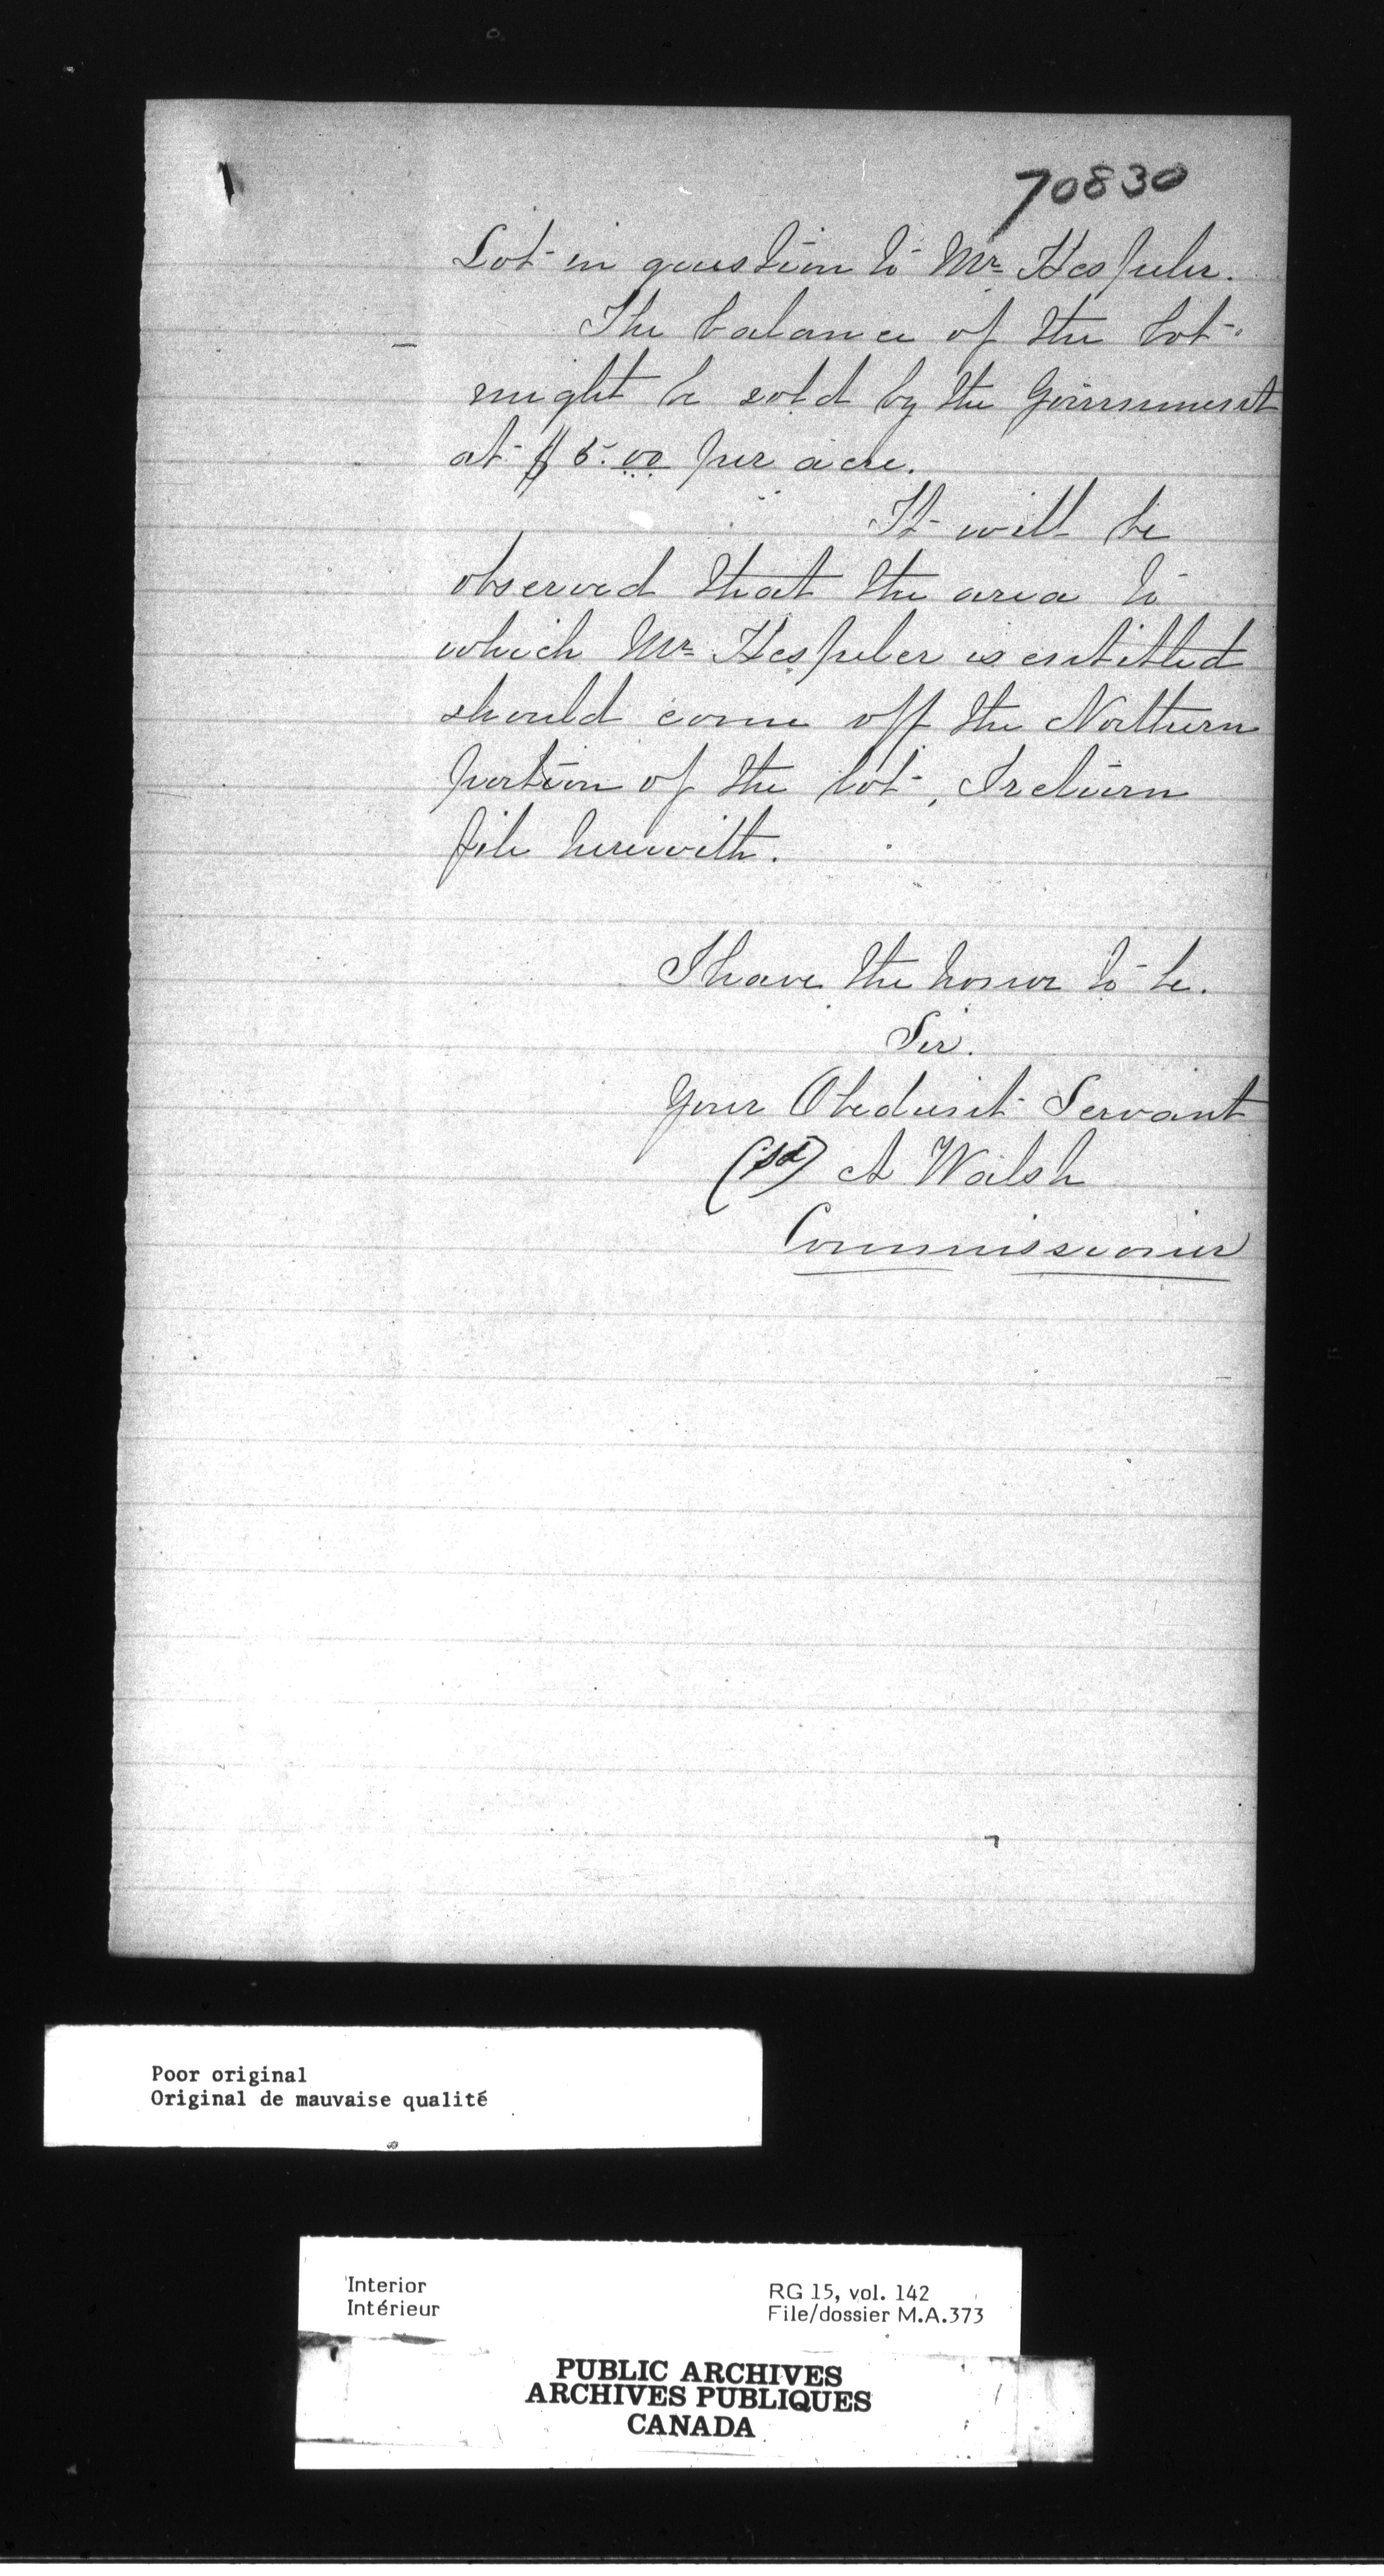 70830
Lot in question to Mr Hespeler.
The balance of the lot
might be sold by the Government
at $5.00 per acre.
It will be
observed that the area to
which Mr Hespeler is entitled
should come off the Northern
portion of the lot, I return
file herewith.
I have the honor to be.
Sir.
Your Obedient Servant
(sd) A Walsh
Commissioner
Poor original
Original de mauvaise qualité
Interior
Intérieur
RG 15, vol. 142
File/dossier M.A.373
PUBLIC ARCHIVES
ARCHIVES PUBLIQUES
CANADA